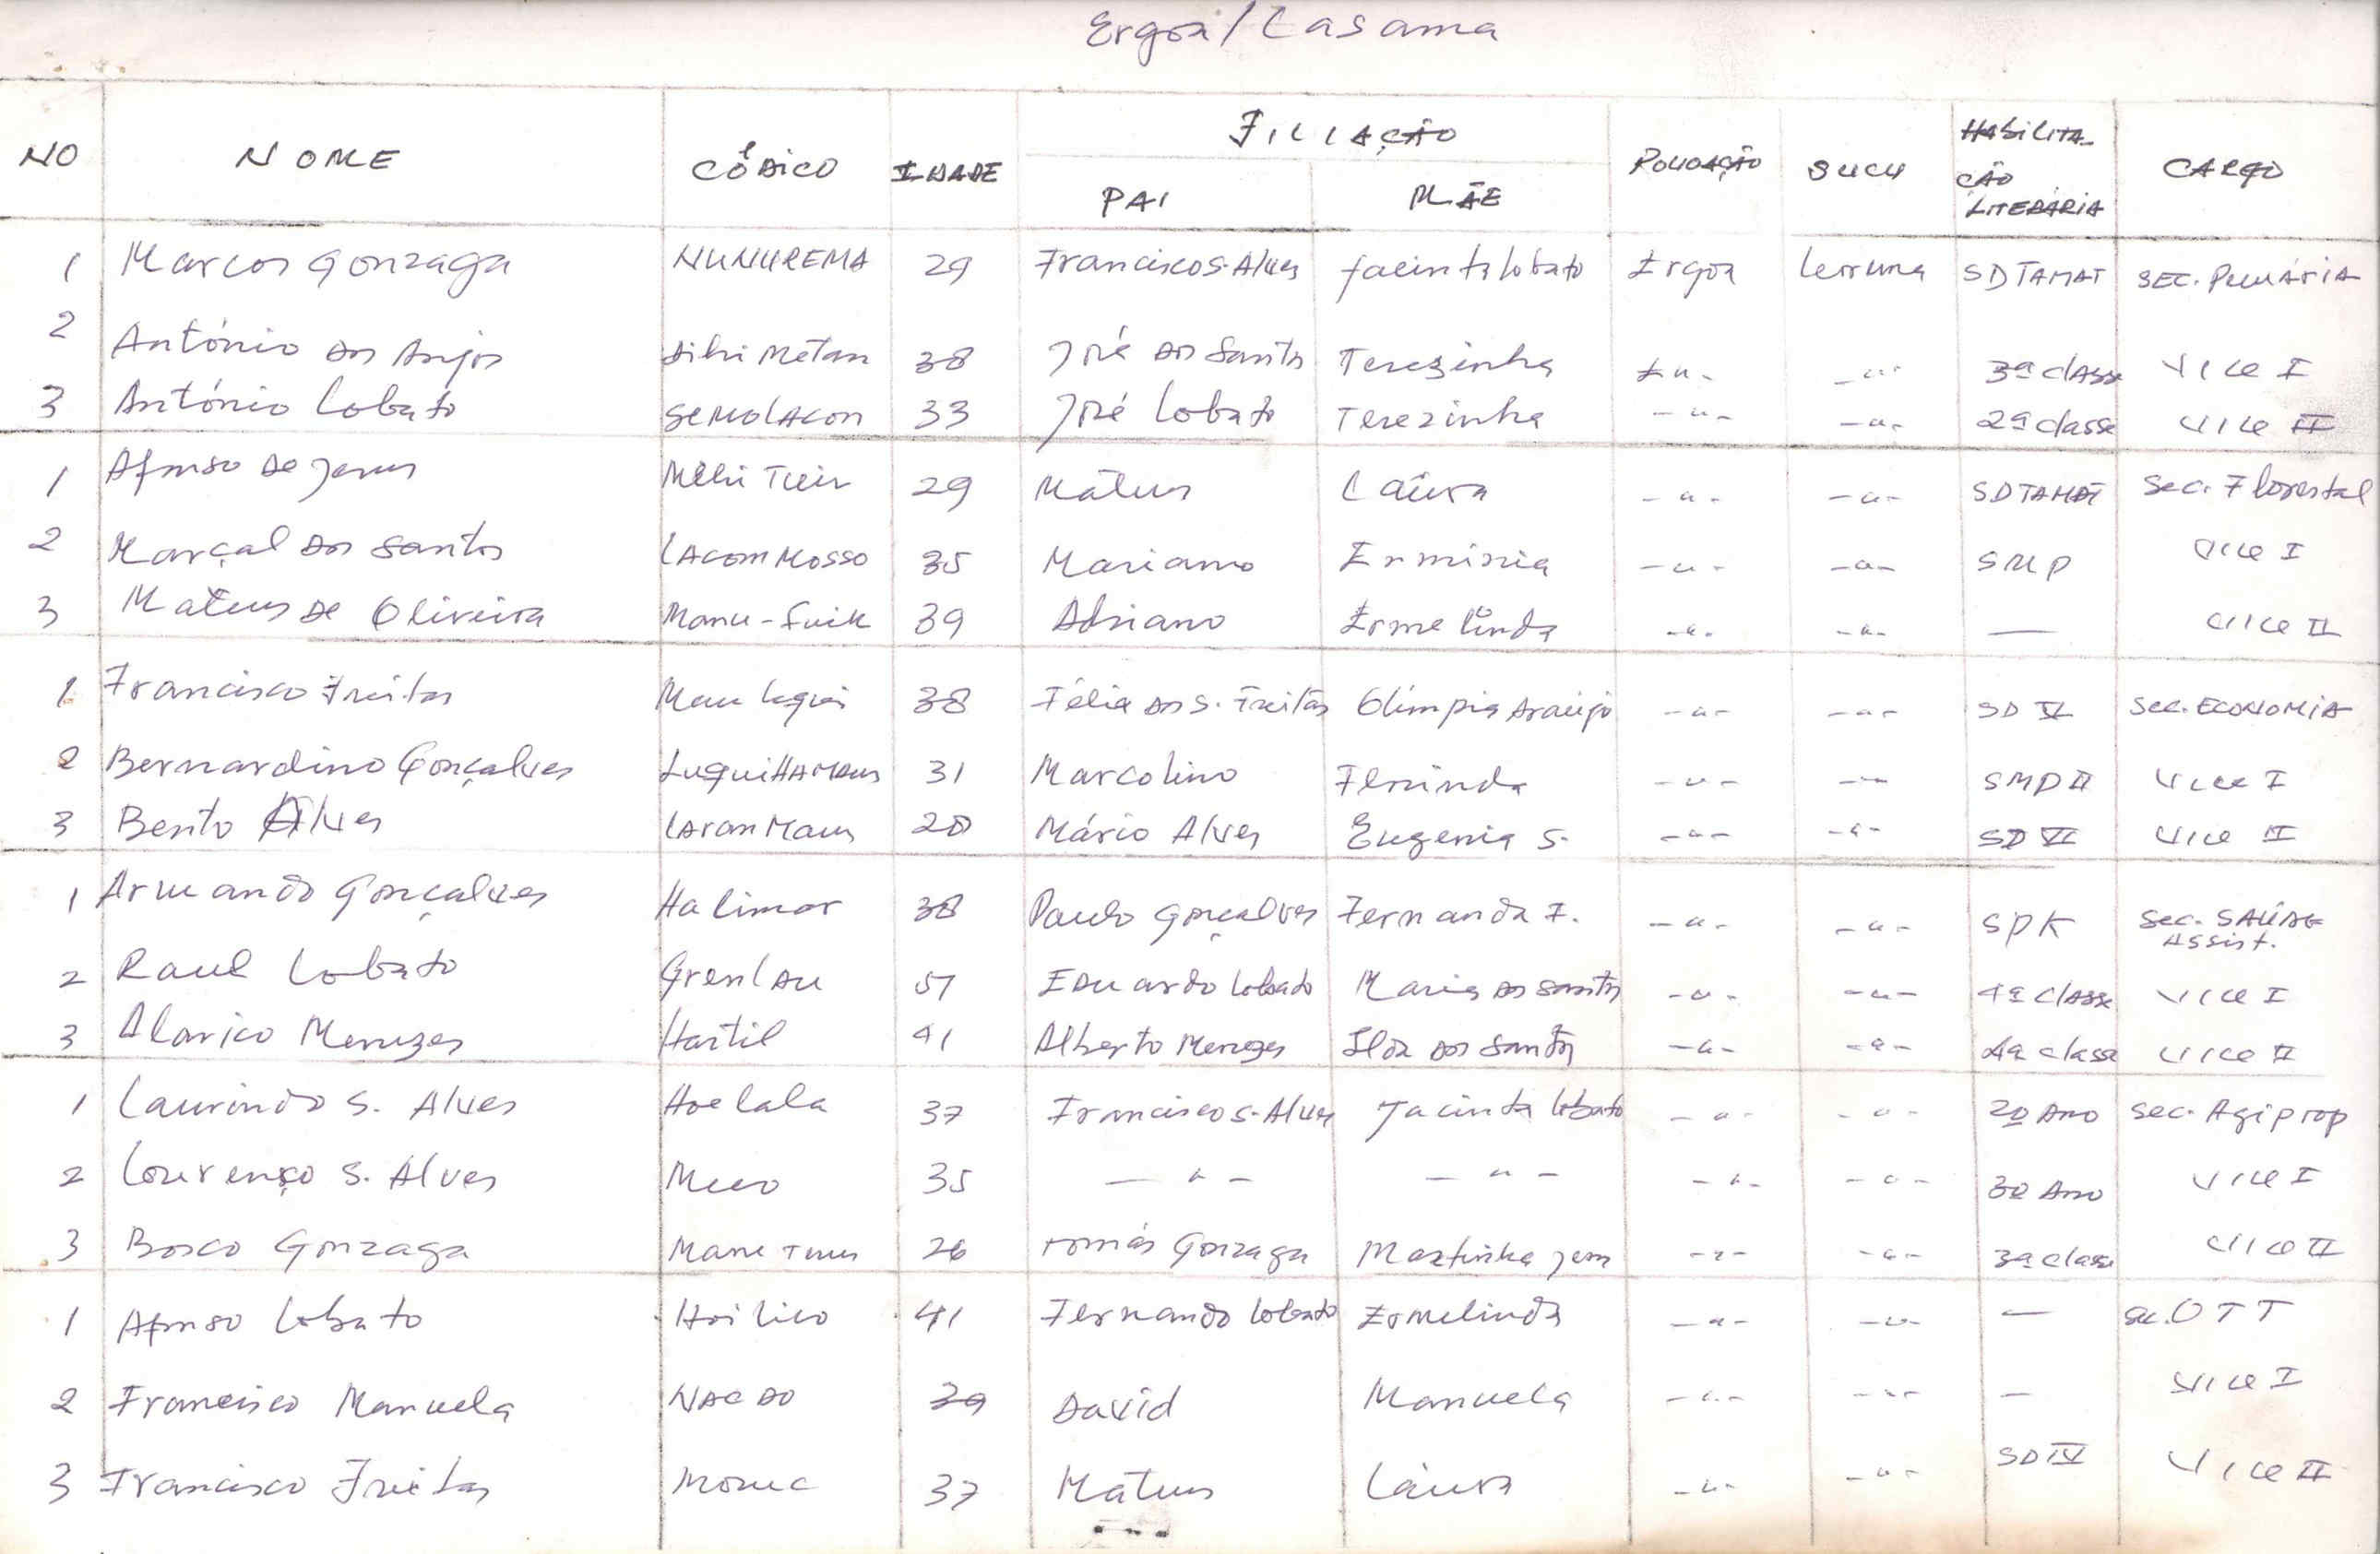 Ergoa / Casama
NO NOME CÓDICO IDADE FILIAÇÃO POVOAÇÃO SUCU HABILITA-ÇÃO LITERÁRIA CARGO
PAI MÃE
1 Marcos Gonzaga NUNUREMA 29 Francisco S. Alves Jacinta Lobato Ergoa Leruma SDTAMAT SEC. Pecuária
2 António dos Anjos Dihi Metan 38 José dos Santos Terezinha -"- -"- 3ª classe Vice I
3 António Lobato SEMOLACON 33 José Lobato Terezinha -"- -"- 2ª classe Vice II
1 Afonso de Jesus 29 Mateus Laura -"- -"- SDTAMAT Sec. Florestal
2 Marçal dos Santos LACOM MOSSO 35 Mariano Erminia -"- -"- SMP Vice I
3 Mateus de Oliveira Manu-Fuik 39 Adriano Ermelinda -"- -"- — Vice II
1 Francisco Freitas 38 Félix dos S. Freitas Olimpia Araújo -"- -"- SD V Sec. ECONOMIA
2 Bernardino Gonçalves 31 Marcolino -"- -"- SMP II Vice I
3 Bento Alves Laran Maus 28 Mário Alves Eugenia S. -"- -"- SD VI Vice II
1 Armando Gonçalves Halimar 38 Paulo Gonçalves Fernanda F. -"- -"- SPK Sec. SAÚDE
Assist.
2 Raul Lobato 51 Eduardo Lobato Maria dos Santos -"- -"- 4ª classe Vice I
3 Alarico Menezes Hartil 41 Alberto Menezes Ilda dos Santos -"- -"- 4ª classe Vice II
1 Laurindo S. Alves Hoelala 37 Francisco S. Alves Jacinta Lobato -"- -"- 2º Ano Sec. Agiprop
2 Lourenço S. Alves 35 -"- -"- -"- -"- 3º Ano Vice I
3 Bosco Gonzaga 26 Tomás Gonzaga Martinha Jesus -"- -"- 3ª classe Vice II
1 Afonso Lobato 41 Fernando Lobato Ermelinda -"- -"- — Sec. OTT
2 Francisco Manuela 39 David Manuela -"- -"- — Vice I
3 Francisco Freitas 37 Mateus Laura -"- -"- SD IV Vice II